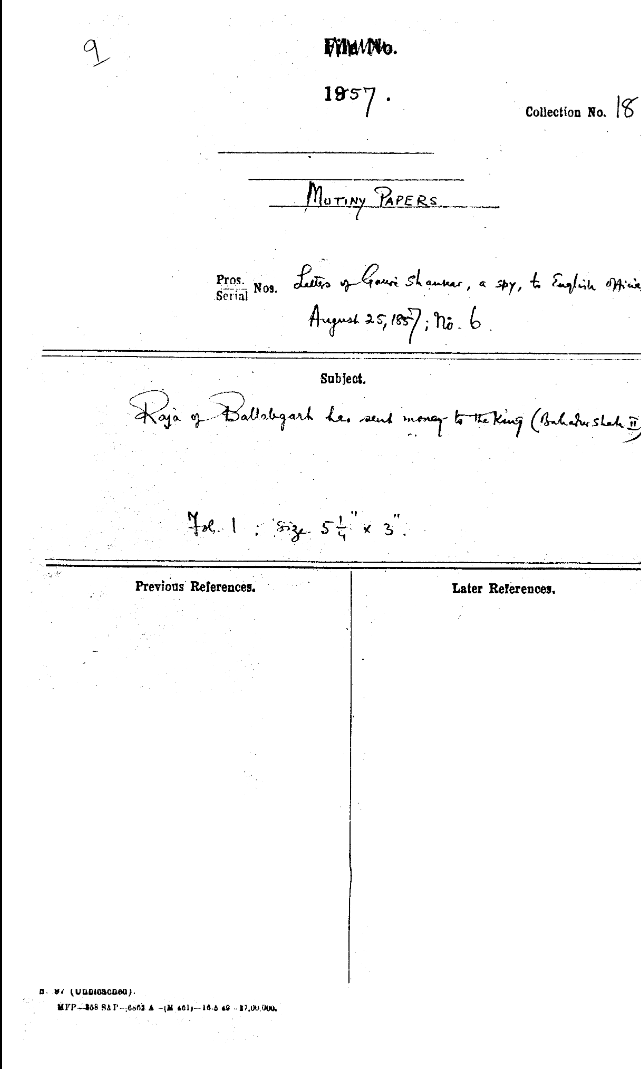 9
File No.
1857.
Collection No. 18
MUTINY PAPERS
Pros.
Serial Nos. Letters of Gauri Shankar, a spy, to English
August 25, 1857; No. 6
Subject.
Raja of Ballabgarh has sent money to the King (Bahadur Shah II)
Fol. 1 ; Size 5 1/4" x 3".
Previous References.
Later References.